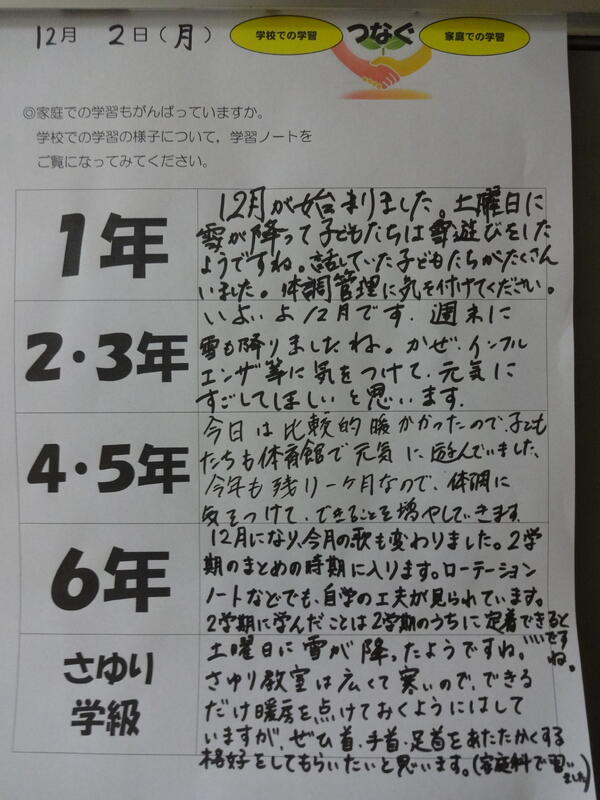 12月 2日(月)
学校での学習 つなぐ 家庭での学習
◎家庭での学習もがんばっていますか。
学校での学習の様子について，学習ノートを
ご覧になってみてください。
1年
12月が始まりました。土曜日に
雪が降って子どもたちは雪遊びをした
ようですね。話していた子どもたちがたくさん
いました。体調管理に気を付けてください。
2・3年
いよいよ12月です。週末に
雪も降りましたね。かぜ、インフル
エンザ等に気をつけて、元気に
すごしてほしいと思います。
4・5年
今日は比較的暖かかったので、子ども
たちも体育館で元気に遊んでいました。
今年も残り一ヶ月なので、体調に
気をつけて、できることを増やしていきます。
6年
12月になり、今月の歌も変わりました。2学
期のまとめの時期に入ります。ローテーション
ノートなどでも、自学の工夫が見られています。
2学期に学んだことは2学期のうちに定着できると
いいですね。
さゆり
学級
土曜日に雪が降ったようですね。
さゆり教室は広くて寒いので、できる
だけ暖房を点けておくようにはして
いますが、ぜひ首・手首・足首をあたたかくする
格好をしてもらいたいと思います。(家庭科で習い
ました)